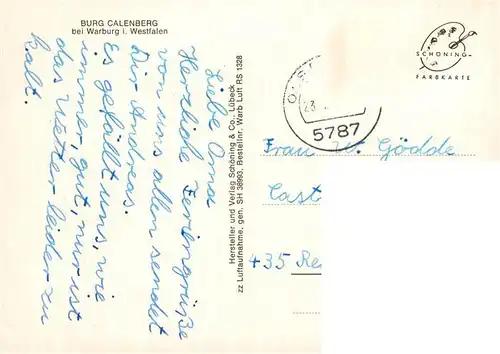 BURG CALENBERG
bei Warburg i. Westfalen
Liebe Oma
Herzliche Feriengrüße
von uns allen sendet
Dir Andreas.
Es gefällt uns, wie
immer, gut, nur ist
das Wetter leider zu
kalt.
Hersteller und Verlag Schöning & Co., Lübeck
zz Luftaufnahme, gen. SH 38993, Bestellnr. Warb Luft RS 1328
SCHÖNING-
FARBKARTE
23.
5787
Frau W. Gödde
Cast
435 Re